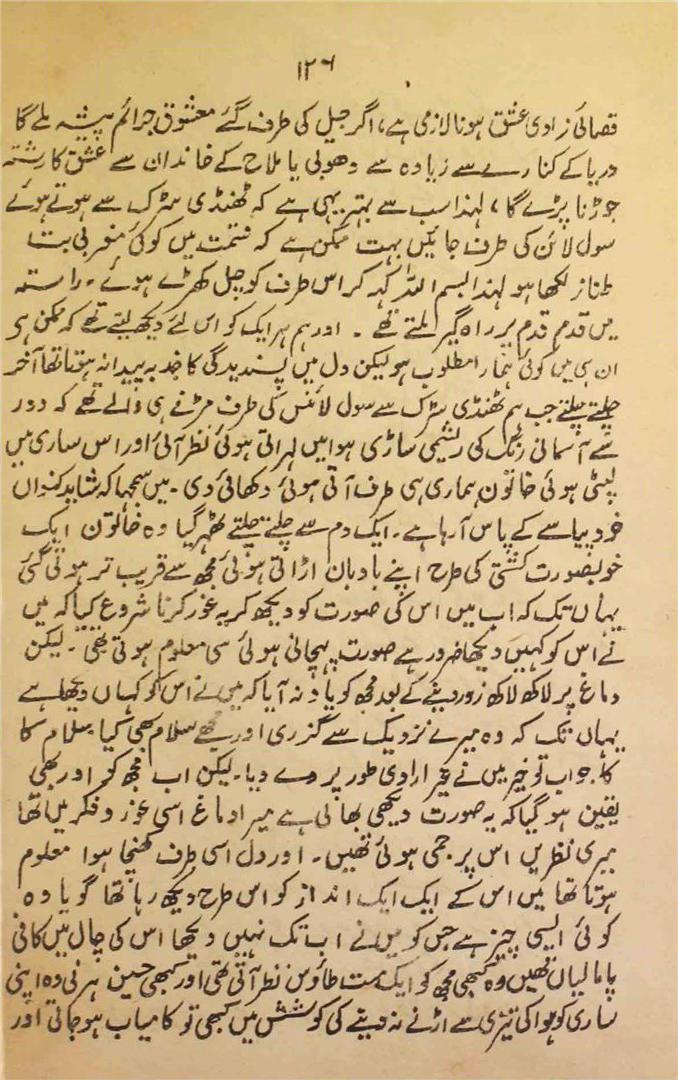 ۱۲۶
قصائی زادی عشق ہونا لازمی ہے، اگر جیل کی طرف گئے معشوق جرائم پیشہ ملے گا
دریا کے کنارے سے زیادہ سے دھوبی یا ملاح کے خاندان سے عشق کا رشتہ
جوڑنا پڑے گا، لہذا سب سے بہتر یہی ہے کہ ٹھنڈی سڑک سے ہوتے ہوئے
سول لائن کی طرف جائیں بہت ممکن ہے کہ قسمت میں کوئی مغربی بت
طناز لکھا ہو لہذا بسم اللہ کہہ کر اس طرف کو چل کھڑے ہوئے۔ راستہ
میں قدم قدم پر راہ گیر ملتے تھے۔ اور ہم ہر ایک کو اس لئے دیکھ لیتے تھے کہ ممکن ہی
ان ہی میں کوئی ہمارا مطلوب ہو لیکن دل میں پسندیدگی کا جذبہ پیدا نہ ہوتا تھا آخر
چلتے چلتے جب ہم ٹھنڈی سڑک سے سول لائنس کی طرف مڑنے ہی والے تھے کہ دور
سے آسمانی رنگ کی ریشمی ساڑی ہوا میں لہراتی ہوئی نظر آئی اور اس ساری میں
لپٹی ہوئی خاتون ہماری ہی طرف آتی ہوئی دکھائی دی۔ میں سمجہا کہ شاید کنواں
خود پیاسے کے پاس آ رہا ہے۔ ایک دم سے چلتے چلتے ٹھہر گیا وہ خاتون ایک
خوبصورت کشتی کی طرح اپنے بادبان اڑاتی ہوئی مجھ سے قریب تر ہوتی گئی
یہاں تک کہ اب میں اس کی صورت کو دیکھ کر یہ غور کرنا شروع کیا کہ میں
نے اس کو کہیں دیکھا ضرور ہے صورت پہچانی ہوئی سی معلوم ہوتی تھی۔ لیکن
دماغ پر لاکھ لاکھ زور دینے کے بعد مجھ کو یاد نہ آیا کہ میں نے اس کو کہاں دیکھا ہے
یہاں تک کہ وہ میرے نزدیک سے گزری اور مجھے سلام بھی کیا سلام کا
کا جواب تو خیر میں نے غیر ارادی طور پر دے دیا۔ لیکن اب مجھ کو اور بھی
یقین ہو گیا کہ یہ صورت دیکھی بھالی ہے میرا دماغ اسی غور و فکر میں تھا
میری نظریں اس پر جمی ہوئی تھیں۔ اور دل اسی طرف کھنچا ہوا معلوم
ہوتا تھا میں اس کے ایک ایک انداز کو اس طرح دیکھ رہا تھا گویا وہ
کوئی ایسی چیز ہے جس کو میں نے اب تک نہیں دیکھا اس کی چال میں کافی
پامالیاں تھیں وہ کبھی مجھ کو ایک مست طاؤس نظر آتی تھی اور کبھی حسین ہرنی وہ اپنی
ساری کو ہوا کی تیزی سے اڑنے نہ دینے کی کوشش میں کبھی تو کامیاب ہو جاتی اور